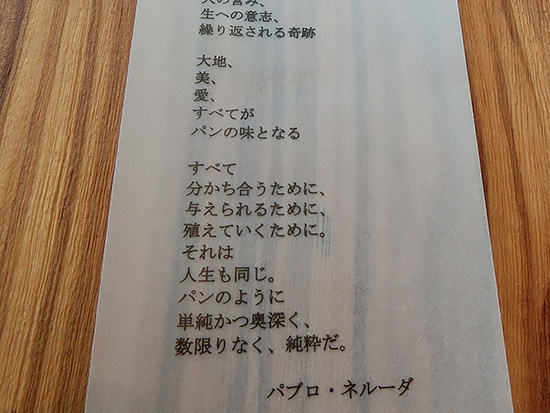 人の営み、
生への意志、
繰り返される奇跡
大地、
美、
愛、
すべてが
パンの味となる
すべて
分かち合うために、
与えられるために、
殖えていくために。
それは
人生も同じ。
パンのように
単純かつ奥深く、
数限りなく、純粋だ。
パブロ・ネルーダ